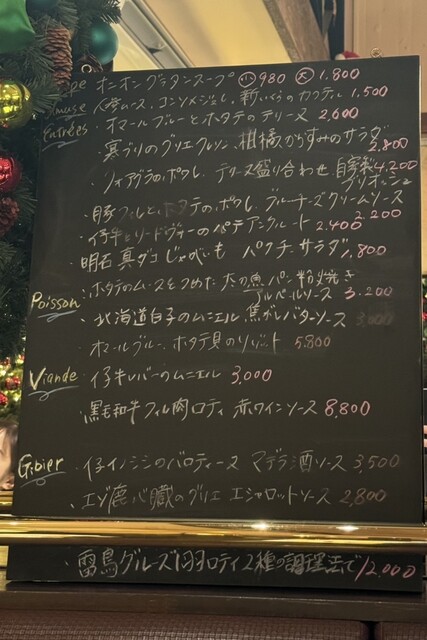 オニオングラタンスープ 小 980 大 1,800
Amuse 人参ムース、コンソメジュレ、新いくらのカクテル 1,500
Entrées ・オマールブルーとホタテのテリーヌ 2,600
・寒ブリのグリエ クルソン、柑橘 からすみのサラダ 2,800
・フォアグラのポワレ、テリーヌ盛り合わせ 自家製ブリオッシュ 4,200
・豚フィレと、ホタテのポワレ ブルーチーズクリームソース 2,200
・仔牛とリードヴォーのパテアンクルート 2,400
・明石 真ダコ じゃがいも パクチーサラダ 1,800
Poisson ・ホタテのムースをつめた 太刀魚パン粉焼き アルベールソース 3,200
・北海道白子のムニエル 焦がしバターソース
・オマールブルー、ホタテ貝のリゾット 5,800
Viande ・仔牛レバーのムニエル 3,000
・黒毛和牛フィレ肉ロティ 赤ワインソース 8,800
Gibier ・仔イノシシのバロティーヌ マデラ酒ソース 3,500
・エゾ鹿心臓のグリエ エシャロットソース 2,800
・雷鳥グルーズ1羽ロティ 2種の調理法で 12,000